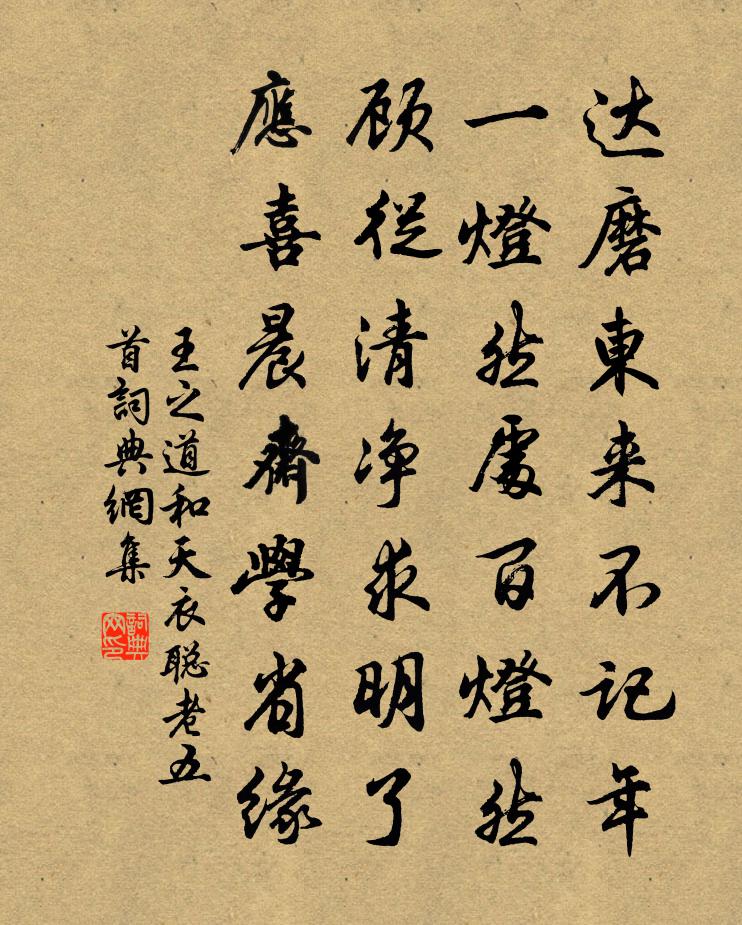 达磨東来不记年
一燈然處百燈然
顾從清净求明了
應喜晨齋學省緣
王之道和天衣聪老五
首詞典網集
詞典
网印